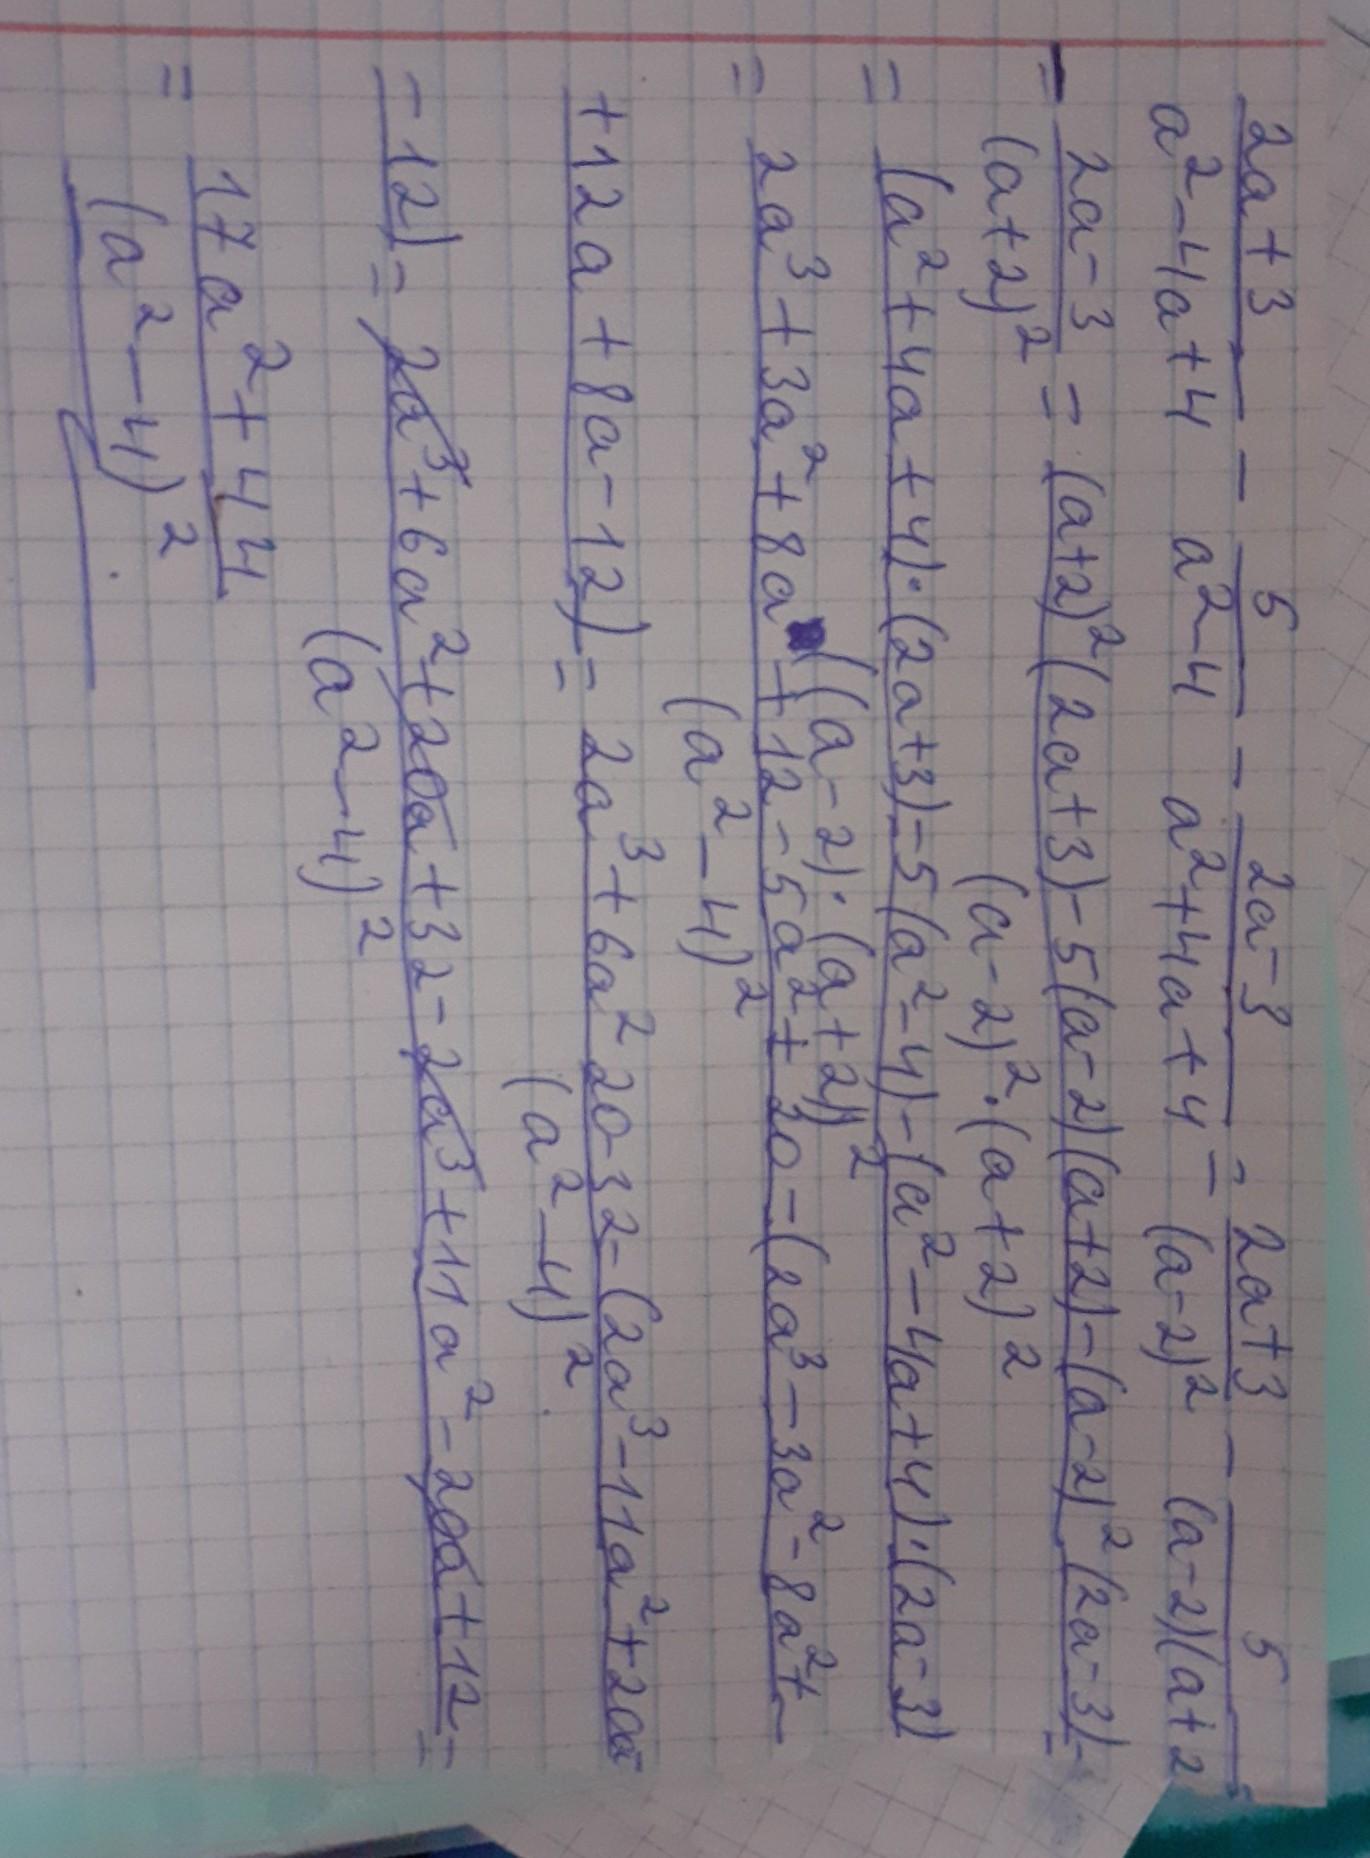 2a+3 / a²-4a+4 - 5 / a²-4 - 2a-3 / a²+4a+4 = 2a+3 / (a-2)² - 5 / (a-2)(a+2 -
- 2a-3 / (a+2)² = (a+2)²(2a+3)-5(a-2)(a+2)-(a-2)²(2a-3) / (a-2)²·(a+2)² =
= (a²+4a+4)·(2a+3)-5(a²-4)-(a²-4a+4)·(2a-3) / ((a-2)·(a+2))²
= 2a³+3a²+8a+12-5a²+20-(2a³-3a²-8a²+ / (a²-4)²
+12a+8a-12) = 2a³+6a²20-32-(2a³-11a²+20a / (a²-4)²
-12) = 2a³+6a²+20a+32-2a³+11a²-20a+12 / (a²-4)² =
= 17a²+44 / (a²-4)²